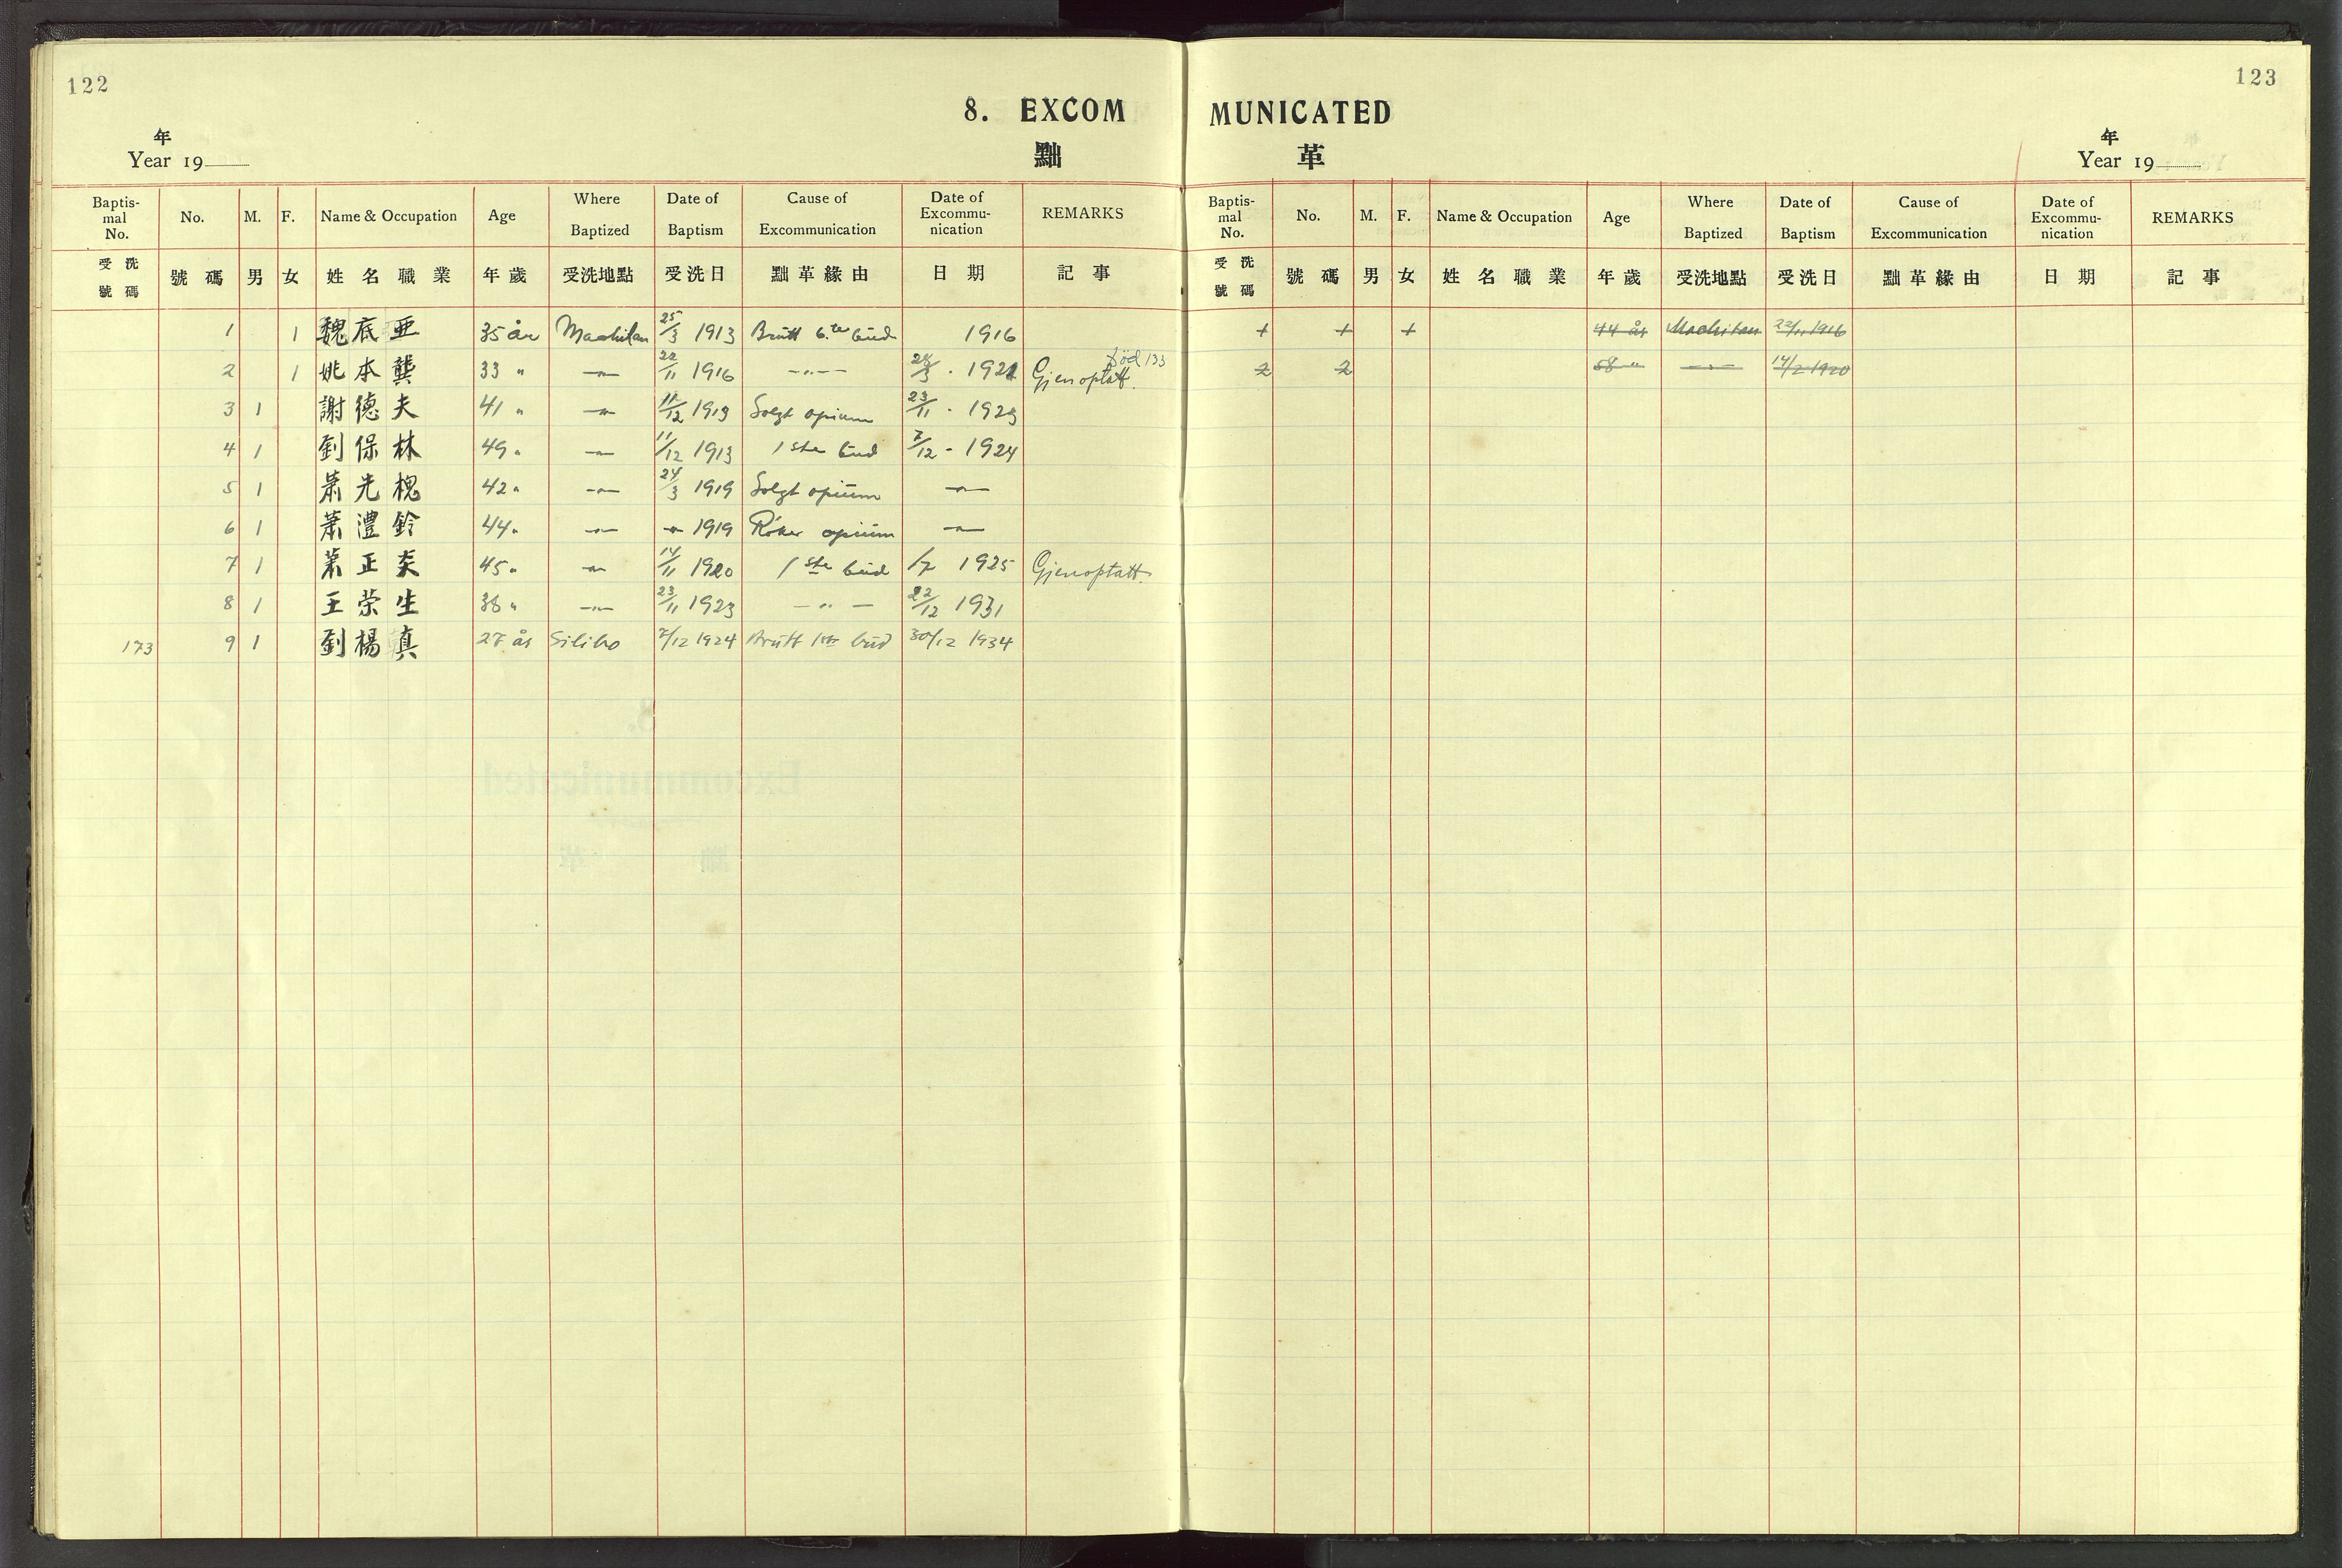 122
8. EXCOM
年
Year 19
黜
Baptismal No. No. M. F. Name & Occupation Age Where Baptized Date of Baptism Cause of Excommunication Date of Excommunication REMARKS
受洗號碼 號碼 男 女 姓名職業 年歲 受洗地點 受洗日 黜革緣由 日期 記事
1 1 魏底亜 35 år Machitan 25/3 1913 Brutt 6.te bud 1916
2 1 姚本龔 33 " —"— 22/11 1916 —"— 28/3 · 1921 Gjenoptatt. Död 133
3 1 謝德夫 41 " —"— 11/12 1913 Solgt opium 23/11 · 1923
4 1 劉保林 49 " —"— 11/12 1913 1ste bud 7/12 - 1924
5 1 萧光槐 42 " —"— 24/3 1919 Solgt opium —"—
6 1 萧澧鈴 44 " —"— —"— 1919 Röker opium —"—
7 1 萧正 45 " —"— 14/11 1920 1ste bud 1/7 1925 Gjenoptatt.
8 1 王荣生 36 " —"— 23/11 1923 —"— 22/12 1931
173 9 1 劉楊真 27 år Silibo 7/12 1924 Brutt 1ste bud 30/12 1934
123
MUNICATED
年
Year 19
革
Baptismal No. No. M. F. Name & Occupation Age Where Baptized Date of Baptism Cause of Excommunication Date of Excommunication REMARKS
受洗號碼 號碼 男 女 姓名職業 年歲 受洗地點 受洗日 黜革緣由 日期 記事
1 1 1 44 år Machitan 22/11 1916
2 2 58 " —"— 14/2 1920